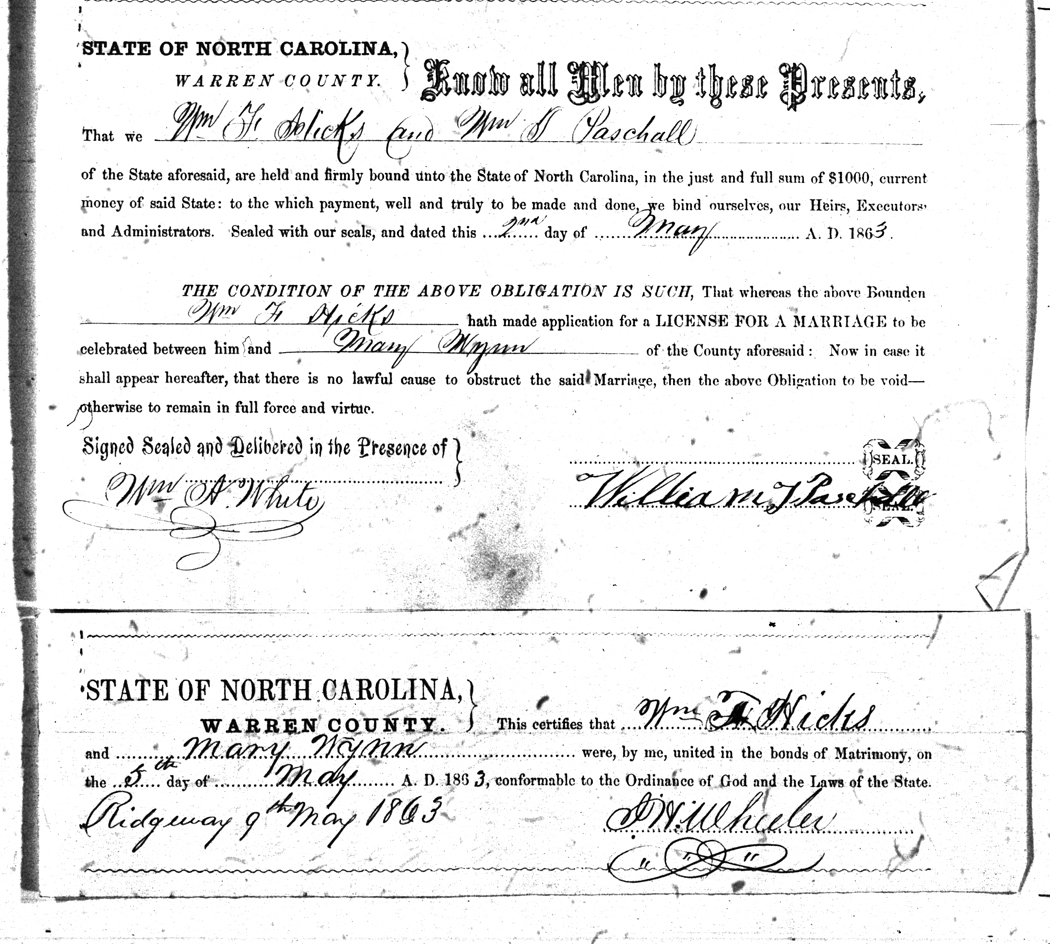 STATE OF NORTH CAROLINA,
WARREN COUNTY.
Know all Men by these Presents,
That we Wm F. Hicks and Wm J Paschall
of the State aforesaid, are held and firmly bound unto the State of North Carolina, in the just and full sum of $1000, current
money of said State: to the which payment, well and truly to be made and done, we bind ourselves, our Heirs, Executors
and Administrators. Sealed with our seals, and dated this 2nd day of May A. D. 1863.
THE CONDITION OF THE ABOVE OBLIGATION IS SUCH, That whereas the above Bounden
Wm F Hicks hath made application for a LICENSE FOR A MARRIAGE to be
celebrated between him and Mary Wynn of the County aforesaid: Now in case it
shall appear hereafter, that there is no lawful cause to obstruct the said Marriage, then the above Obligation to be void—
otherwise to remain in full force and virtue.
Signed Sealed and Delibered in the Presence of
SEAL.
Wm A. White
William J Paschall
SEAL.
STATE OF NORTH CAROLINA,
WARREN COUNTY.
This certifies that Wm F Hicks
and Mary Wynn were, by me, united in the bonds of Matrimony, on
the 5th day of May A. D. 1863, conformable to the Ordinance of God and the Laws of the State.
Ridgeway 9th May 1863
J. W. Wheeler